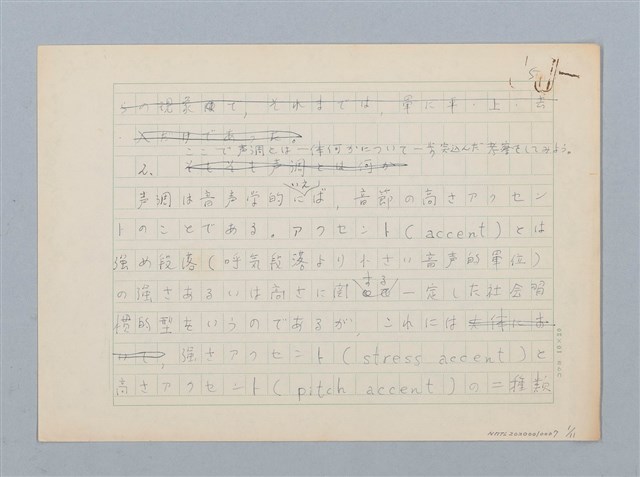 らの現象で、それまでは、單に平・上・去
ここで声調とは一体何かについて一歩突込んだ考察をしてみよう。
2. そもそも声調とは何か
声調は音声学的にいえば、音節の高さアクセン
トのことである。アクセント(accent)とは
強め段落(呼気段落より小さい音声的單位)
の強さあるいは高さに関する一定した社会習
慣的型をいうのであるが、これには大体にお
いて、強さアクセント(stress accent)と
高さアクセント(pitch accent)の二種類
NMTL200000010007 1/11